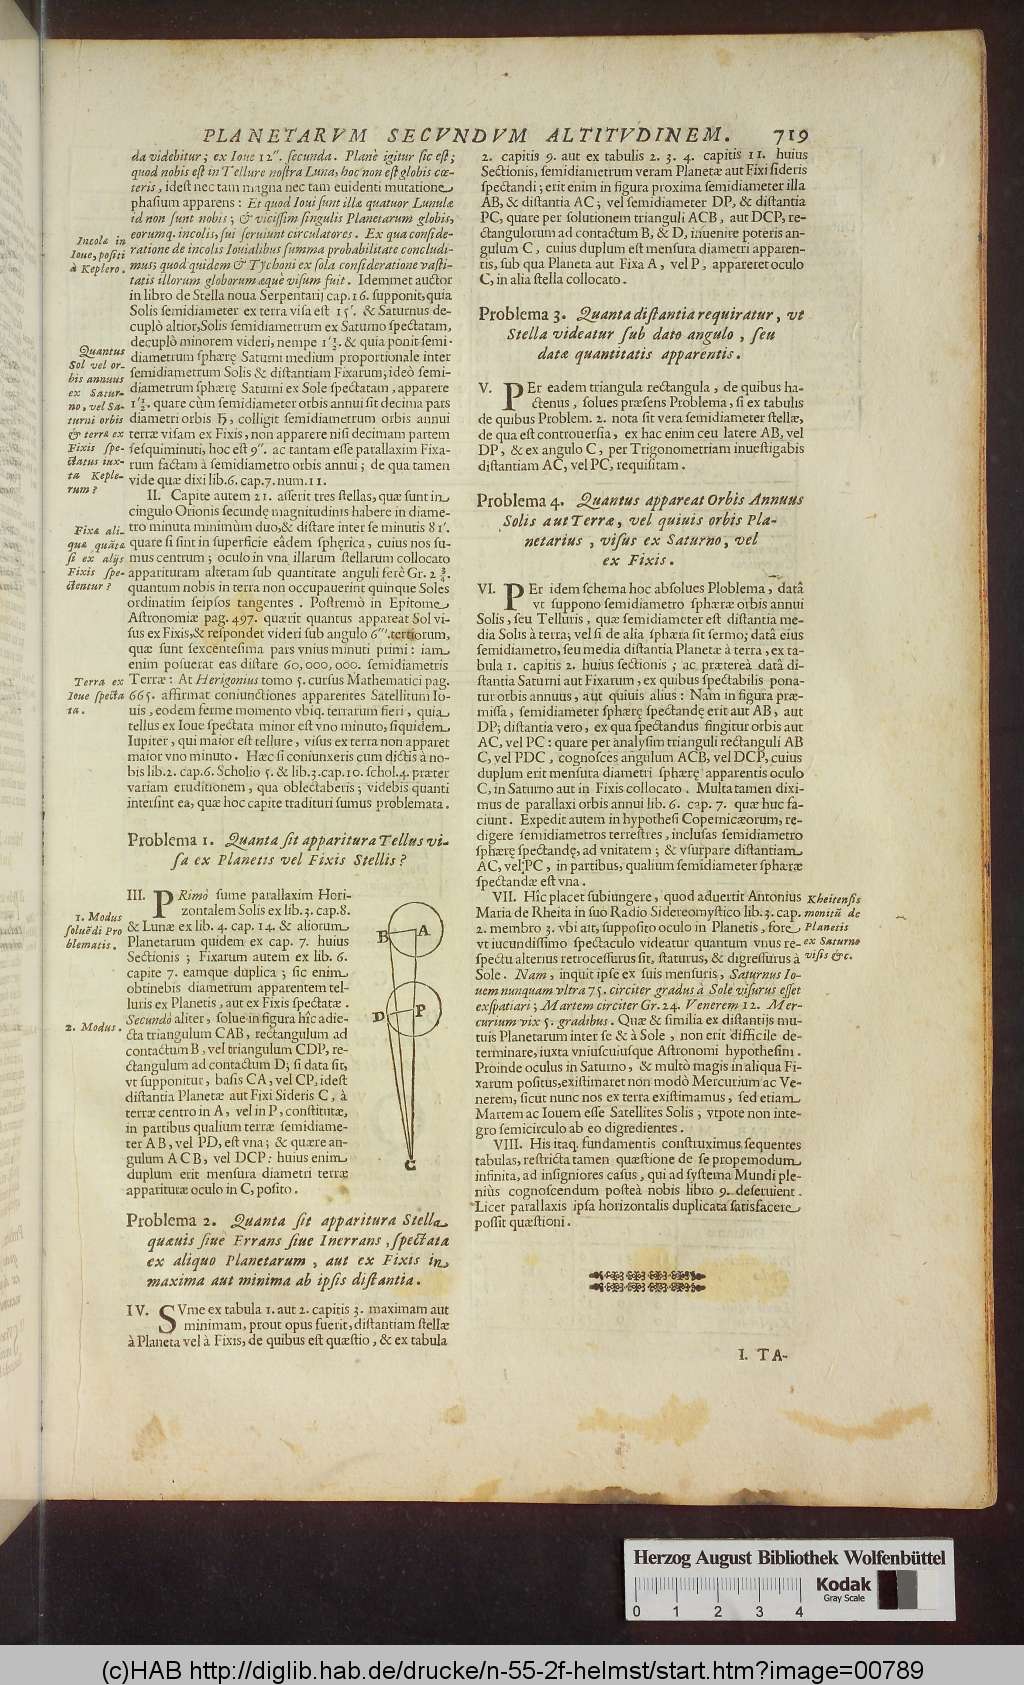 PLANETARVM SECVNDVM ALTITVDINEM. 719
da videbitur; ex Ioue 12". secunda. Planè igitur sic est;
quod nobis est in Tellure nostra Luna, hoc non est globis cæ-
teris, idest nec tam magna nec tam euidenti mutatione
phasium apparens: Et quod Ioui sunt illæ quatuor Lunulæ
id non sunt nobis; & vicissim singulis Planetarum globis,
eorumq. incolis, sui seruiunt circulatores. Ex qua conside-
ratione de incolis Iouialibus summa probabilitate concludi-
mus; quod quidem & Tychoni ex sola consideratione vasti-
tatis illorum globorum æquè visum fuit. Idemmet auctor
in libro de Stella noua Serpentarij cap. 16. supponit, quia
Solis semidiameter ex terra visa est 15'. & Saturnus de-
cuplò altior, Solis semidiametrum ex Saturno spectatam,
decuplò minorem videri, nempe 1'½. & quia ponit semi-
diametrum sphærę Saturni medium proportionale inter
semidiametrum Solis & distantiam Fixarum; ideò semi-
diametrum sphærę Saturni ex Sole spectatam, apparere
1'½. quare cùm semidiameter orbis annui sit decima pars
diametri orbis ♄, colligit semidiametrum orbis annui
terræ visam ex Fixis, non apparere nisi decimam partem
sesquiminuti, hoc est 9". ac tantam esse parallaxim Fixa-
rum factam à semidiametro orbis annui; de qua tamen
vide quæ dixi lib. 6. cap. 7. num. 11.
II. Capite autem 21. asserit tres stellas, quæ sunt in
cingulo Orionis secundę magnitudinis habere in diame-
tro minuta minimùm duo, & distare inter se minutis 81'.
quare si sint in superficie eâdem sphęrica, cuius nos su-
mus centrum; oculo in vna illarum stellarum collocato
apparituram alteram sub quantitate anguli ferè Gr. 2 ¾.
quantum nobis in terra non occupauerint quinque Soles
ordinatim seipsos tangentes. Postremò in Epitome
Astronomiæ pag. 497. quærit quantus appareat Sol vi-
sus ex Fixis, & respondet videri sub angulo 6'''. tertiorum,
quæ sunt sexcentesima pars vnius minuti primi: iam
enim posuerat eas distare 60,000,000. semidiametris
Terræ: At Herigonius tomo 5. cursus Mathematici pag.
665. affirmat coniunctiones apparentes Satellitum Io-
uis, eodem ferme momento vbiq. terrarum fieri, quia
tellus ex Ioue spectata minor est vno minuto, siquidem
Iupiter, qui maior est tellure, visus ex terra non apparet
maior vno minuto. Hæc si coniunxeris cum dictis à no-
bis lib. 2. cap. 6. Scholio 5. & lib. 3. cap. 10. schol. 4. præter
variam eruditionem, qua oblectaberis; videbis quanti
intersint ea, quæ hoc capite tradituri sumus problemata.
Incolæ in
Ioue, positi
à Keplero.
Quantus
Sol vel or-
bis annuus
ex Satur-
no, vel Sa-
turni orbis
& terra ex
Fixis spe-
ctatus iux-
ta Keple-
rum?
Fixæ ali-
quæ quātæ
si ex alijs
Fixis spe-
ctentur?
Terra ex
Ioue specta
ta.
Problema 1. Quanta sit apparitura Tellus vi-
sa ex Planetis vel Fixis Stellis?
III. PRimò sume parallaxim Hori-
zontalem Solis ex lib. 3. cap. 8.
& Lunæ ex lib. 4. cap. 14. & aliorum
Planetarum quidem ex cap. 7. huius
Sectionis; Fixarum autem ex lib. 6.
capite 7. eamque duplica; sic enim
obtinebis diametrum apparentem tel-
luris ex Planetis, aut ex Fixis spectatæ.
Secundò aliter, solue in figura hîc adie-
cta triangulum CAB, rectangulum ad
contactum B, vel triangulum CDP, re-
ctangulum ad contactum D; si data sit,
vt supponitur, basis CA, vel CP, idest
distantia Planetæ aut Fixi Sideris C, à
terræ centro in A, vel in P, constitutæ,
in partibus qualium terræ semidiame-
ter AB, vel PD, est vna; & quære an-
gulum ACB, vel DCP: huius enim
duplum erit mensura diametri terræ
appariturę oculo in C, posito.
1. Modus
soluēdi Pro
blematis.
2. Modus.
B A
D P
C
Problema 2. Quanta sit apparitura Stella
quæuis siue Errans siue Inerrans, spectata
ex aliquo Planetarum, aut ex Fixis in
maxima aut minima ab ipsis distantia.
IV. SVme ex tabula 1. aut 2. capitis 3. maximam aut
minimam, prout opus fuerit, distantiam stellæ
à Planeta vel à Fixis, de quibus est quæstio, & ex tabula
2. capitis 9. aut ex tabulis 2. 3. 4. capitis 11. huius
Sectionis, semidiametrum veram Planetæ aut Fixi sideris
spectandi; erit enim in figura proxima semidiameter illa
AB, & distantia AC; vel semidiameter DP, & distantia
PC, quare per solutionem trianguli ACB, aut DCP, re-
ctangulorum ad contactum B, & D, inuenire poteris an-
gulum C, cuius duplum est mensura diametri apparen-
tis, sub qua Planeta aut Fixa A, vel P, appareret oculo
C, in alia stella collocato.
Problema 3. Quanta distantia requiratur, vt
Stella videatur sub dato angulo, seu
datæ quantitatis apparentis.
V. PEr eadem triangula rectangula, de quibus ha-
ctenus, solues præsens Problema, si ex tabulis
de quibus Problem. 2. nota sit vera semidiameter stellæ,
de qua est controuersia, ex hac enim ceu latere AB, vel
DP, & ex angulo C, per Trigonometriam inuestigabis
distantiam AC, vel PC, requisitam.
Problema 4. Quantus appareat Orbis Annuus
Solis aut Terræ, vel quiuis orbis Pla-
netarius, visus ex Saturno, vel
ex Fixis.
VI. PEr idem schema hoc absolues Ploblema, datâ
vt suppono semidiametro sphæræ orbis annui
Solis, seu Telluris, quæ semidiameter est distantia me-
dia Solis à terra; vel si de alia sphæra sit sermo; datâ eius
semidiametro, seu media distantia Planetæ à terra, ex ta-
bula 1. capitis 2. huius sectionis; ac prætereà datâ di-
stantia Saturni aut Fixarum, ex quibus spectabilis pona-
tur orbis annuus, aut quiuis alius: Nam in figura præ-
missa, semidiameter sphærę spectandę erit aut AB, aut
DP; distantia vero, ex qua spectandus fingitur orbis aut
AC, vel PC: quare per analysim trianguli rectanguli AB
C, vel PDC, cognosces angulum ACB, vel DCP, cuius
duplum erit mensura diametri sphærę apparentis oculo
C, in Saturno aut in Fixis collocato. Multa tamen dixi-
mus de parallaxi orbis annui lib. 6. cap. 7. quæ huc fa-
ciunt. Expedit autem in hypothesi Copernicæorum, re-
digere semidiametros terrestres, inclusas semidiametro
sphærę spectandę, ad vnitatem; & vsurpare distantiam
AC, vel PC, in partibus, qualium semidiameter sphæræ
spectandæ est vna.
VII. Hîc placet subiungere, quod aduertit Antonius
Maria de Rheita in suo Radio Sidereomystico lib. 3. cap.
2. membro 3. vbi ait, supposito oculo in Planetis, fore
vt iucundissimo spectaculo videatur quantum vnus re-
spectu alterius retrocessurus sit, staturus, & digressurus à
Sole. Nam, inquit ipse ex suis mensuris, Saturnus Io-
uem nunquam vltra 75. circiter gradus à Sole visurus esset
exspatiari; Martem circiter Gr. 24. Venerem 12. Mer-
curium vix 5. gradibus. Quæ & similia ex distantijs mu-
tuis Planetarum inter se & à Sole, non erit difficile de-
terminare, iuxta vniuscuiusque Astronomi hypothesim.
Proinde oculus in Saturno, & multò magis in aliqua Fi-
xarum positus, existimaret non modò Mercurium ac Ve-
nerem, sicut nunc nos ex terra existimamus, sed etiam
Martem ac Iouem esse Satellites Solis; vtpote non inte-
gro semicirculo ab eo digredientes.
Rheitensis
monitū de
Planetis
ex Saturno
visis &c.
VIII. His itaq. fundamentis construximus sequentes
tabulas, restricta tamen quæstione de se propemodum
infinita, ad insigniores casus, qui ad systema Mundi ple-
niùs cognoscendum posteà nobis libro 9. deseruient.
Licet parallaxis ipsa horizontalis duplicata satisfacere
possit quæstioni.
I. TA-
Herzog August Bibliothek Wolfenbüttel
Kodak
Gray Scale
0 1 2 3 4
(c)HAB http://diglib.hab.de/drucke/n-55-2f-helmst/start.htm?image=00789